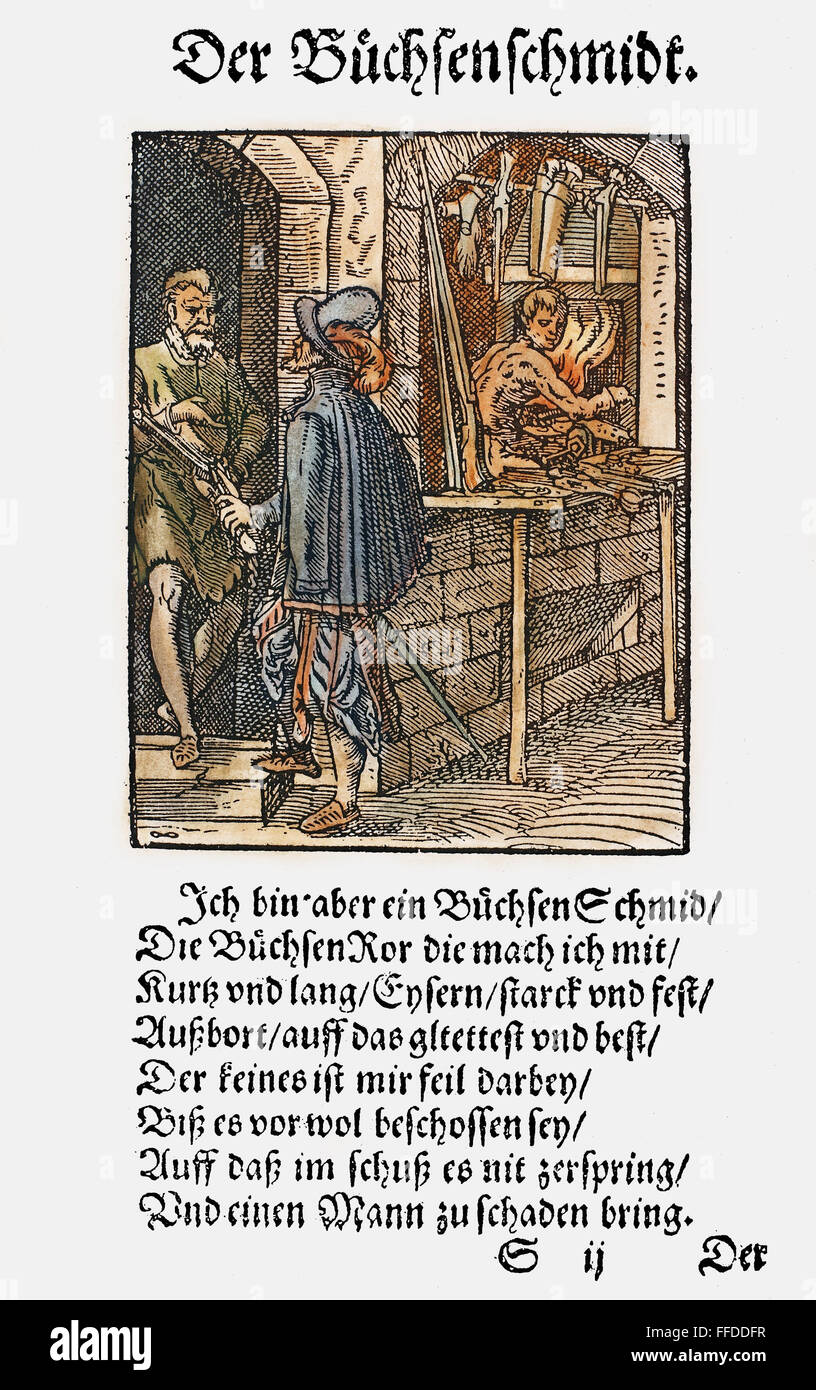 Der Bůchsenschmidt.
Ich bin aber ein BůchsenSchmid/
Die BůchsenRor die mach ich mit/
Kurtz vnd lang/Eysern/starck vnd fest/
Außbort/auff das glettest vnd best/
Der keines ist mir feil darbey/
Biß es vor wol beschossen sey/
Auff daß im schuß es nit zerspring/
Vnd einen Mann zu schaden bring.
S ij Der
alamy
Image ID: FFDDFR
www.alamy.com